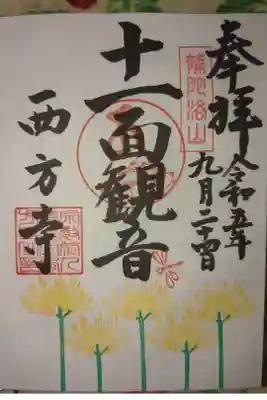 奉拝
令和五年
九月二十四日
補陀洛山
十一面観音
西方寺